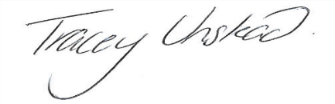 Tracey Unskad.